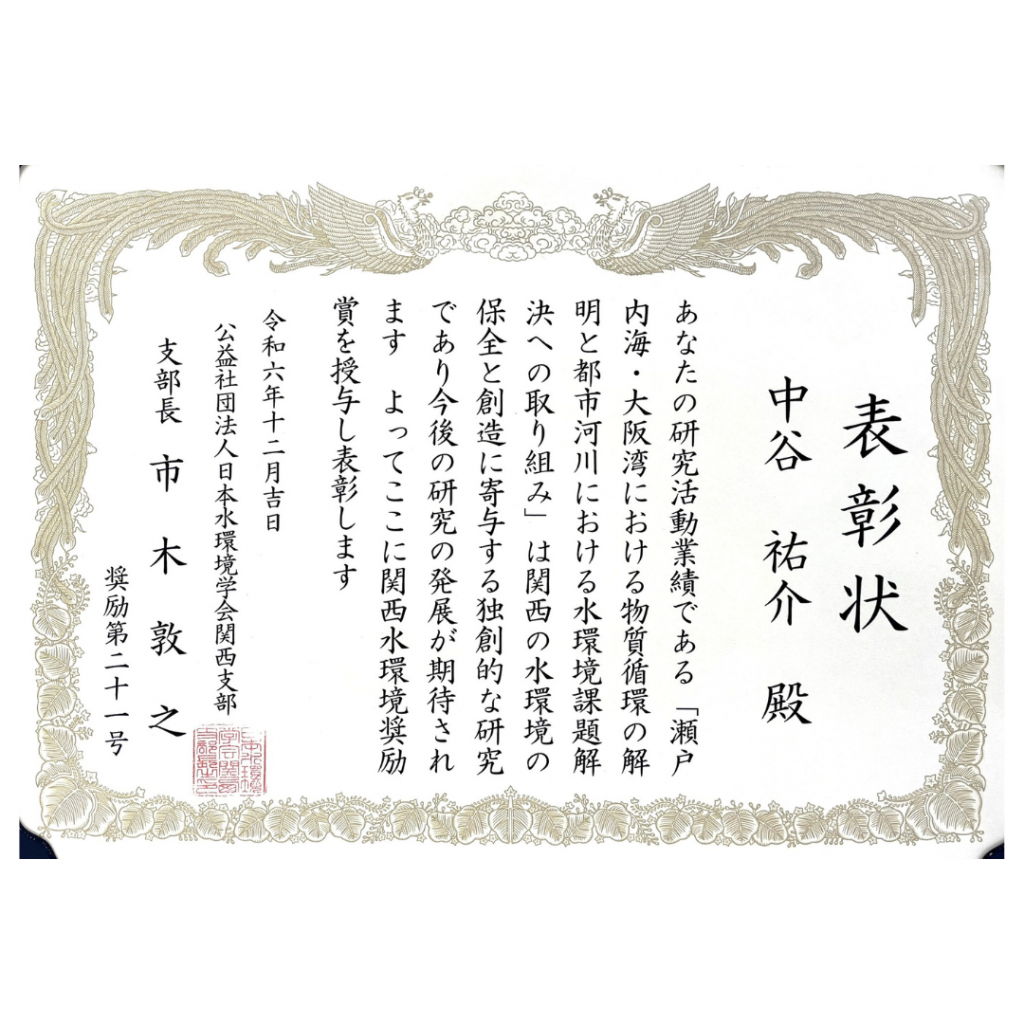 表彰状
中谷 祐介 殿
あなたの研究活動業績である「瀬戸
内海・大阪湾における物質循環の解
明と都市河川における水環境課題解
決への取り組み」は関西の水環境の
保全と創造に寄与する独創的な研究
であり今後の研究の発展が期待され
ます よってここに関西水環境奨励
賞を授与し表彰します
令和六年十二月吉日
公益社団法人日本水環境学会関西支部
支部長 市木敦之
奨励第二十一号